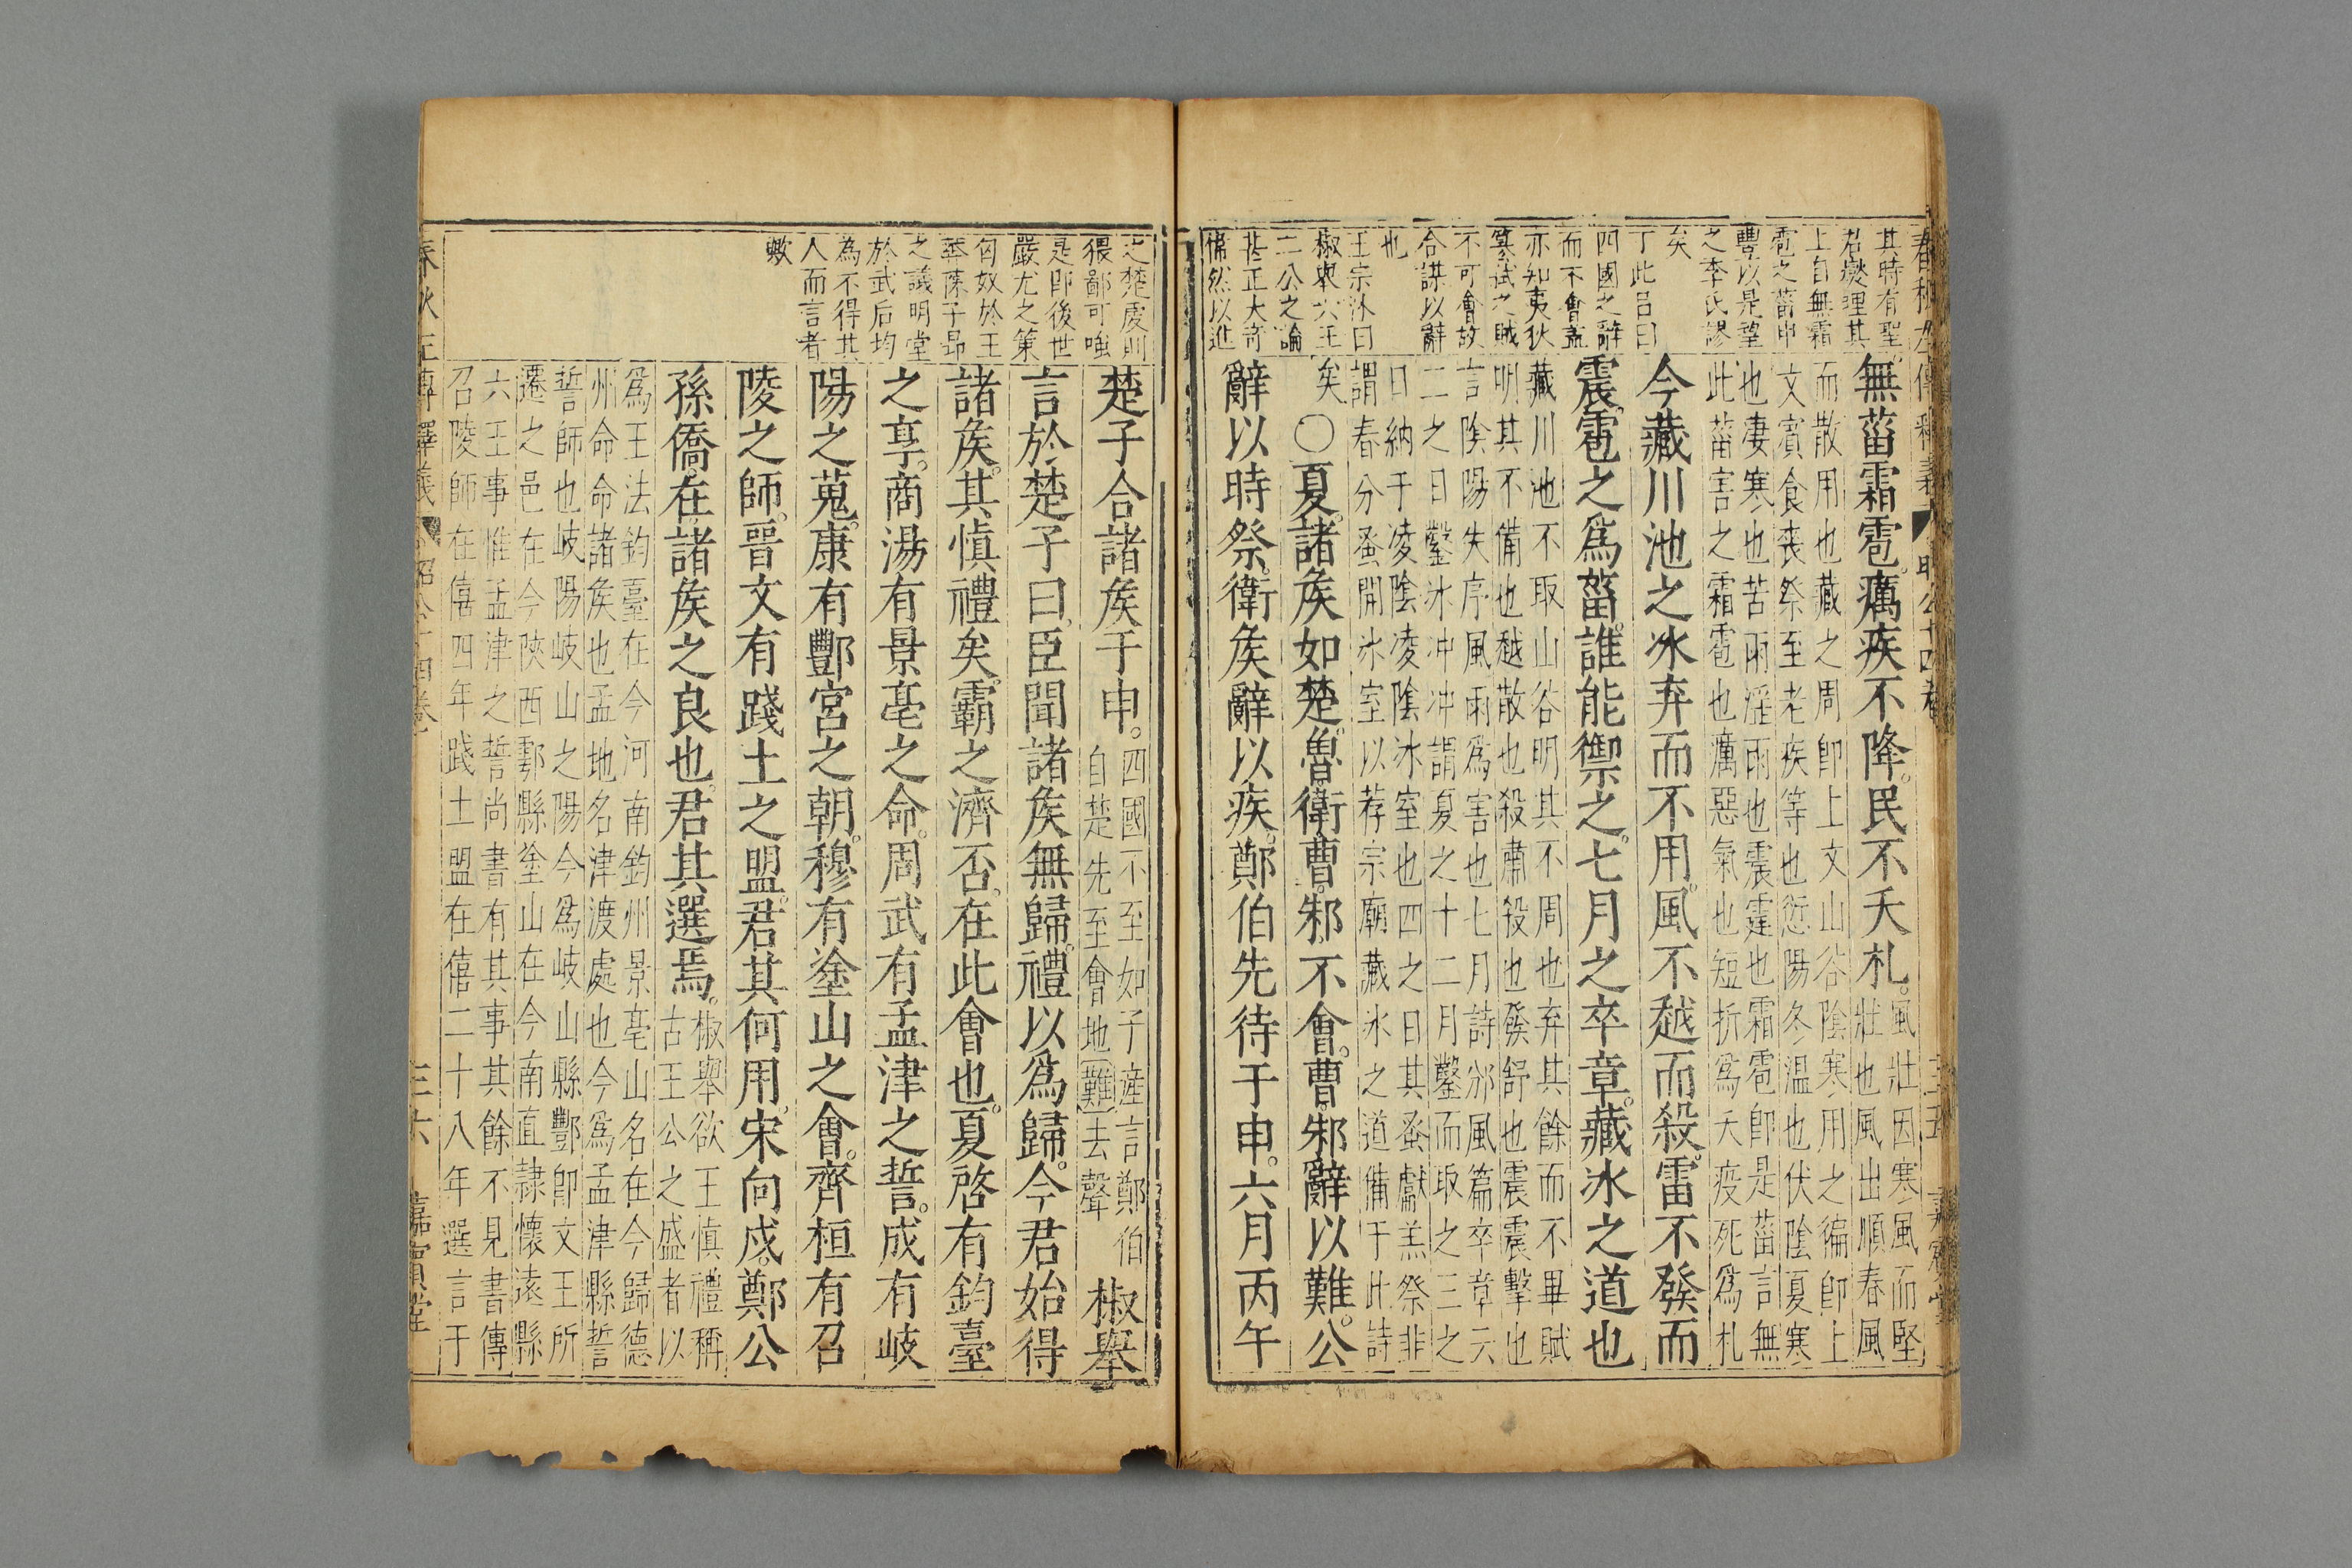 其時有聖
君燮理其
上自無霜
雹之菑申
豐以是望
之季氏謬
矣
丁此呂曰
四國之辭
而不會盖
亦知夷狄
篡弑之賊
不可會故
合謀以辭
也
王宗沐曰
椒舉六王
二公之論
甚正大奇
偉然以進
無菑霜雹癘疾不降民不夭札。
風壯因寒風而堅
壯也風出順春風
而散用也藏之周卽上文山谷陰寒用之徧卽上
文賓食喪祭至老疾等也愆陽冬温也伏陰夏寒
也凄寒也苦雨淫雨也震霆也霜雹卽是菑言無
此菑害之霜雹也癘惡氣也短折爲夭疫死爲札
今藏川池之冰弃而不用。風不越而殺雷不發而
震。雹之爲菑誰能禦之。七月之卒章藏冰之道也
藏川池不取山谷明其不周也弃其餘而不畢賦
明其不備也越散也殺肅殺也發舒也震震擊也
言陰陽失序風雨爲害也七月詩邠風篇卒章云
二之日鑿冰冲冲謂夏之十二月鑿而取之三之
日納于凌陰凌陰冰室也四之日其蚤獻羔祭非
謂春分蚤開冰室以荐宗廟藏冰之道備于此詩
矣
○夏諸矦如楚魯衛曹邾不會。曹邾辭以難。公
辭以時祭。衛矦辭以疾。鄭伯先待于申。六月丙午
春秋左傳釋義
昭公十四卷
三十五
嘉賓堂
之楚虔則
猥鄙可嗤
是卽後世
嚴尤之策
匈奴於王
莽陳子昻
之議明堂
於武后均
為不得其
人而言者
歟
楚子合諸矦于申。
四國不至如子産言鄭伯
自楚先至會地難去聲
椒舉
言於楚子曰臣聞諸矦無歸。禮以爲歸。今君始得
諸矦其愼禮矣。霸之濟否在此會也。夏啓有鈞臺
之享。商湯有景亳之命。周武有孟津之誓。成有岐
陽之蒐康有酆宮之朝。穆有塗山之會。齊桓有召
陵之師。晉文有踐土之盟。君其何用宋向戍鄭公
孫僑在諸矦之良也。君其選焉。
椒舉欲王愼禮稱
古王公之盛者以
爲王法鈞臺在今河南鈞州景亳山名在今歸德
州命命諸矦也孟地名津渡處也今爲孟津縣誓
誓師也岐陽岐山之陽今爲岐山縣酆卽文王所
遷之邑在今陝西鄠縣塗山在今南直隸懷遠縣
六王事惟孟津之誓尚書有其事其餘不見書傳
召陵師在僖四年踐土盟在僖二十八年選言于
春秋左傳釋義
昭公十四卷
三十六
嘉賓堂